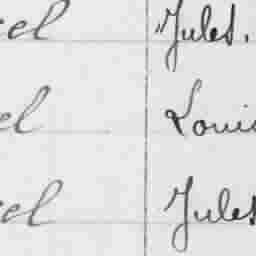 el Jules.
el Louis
el Jules